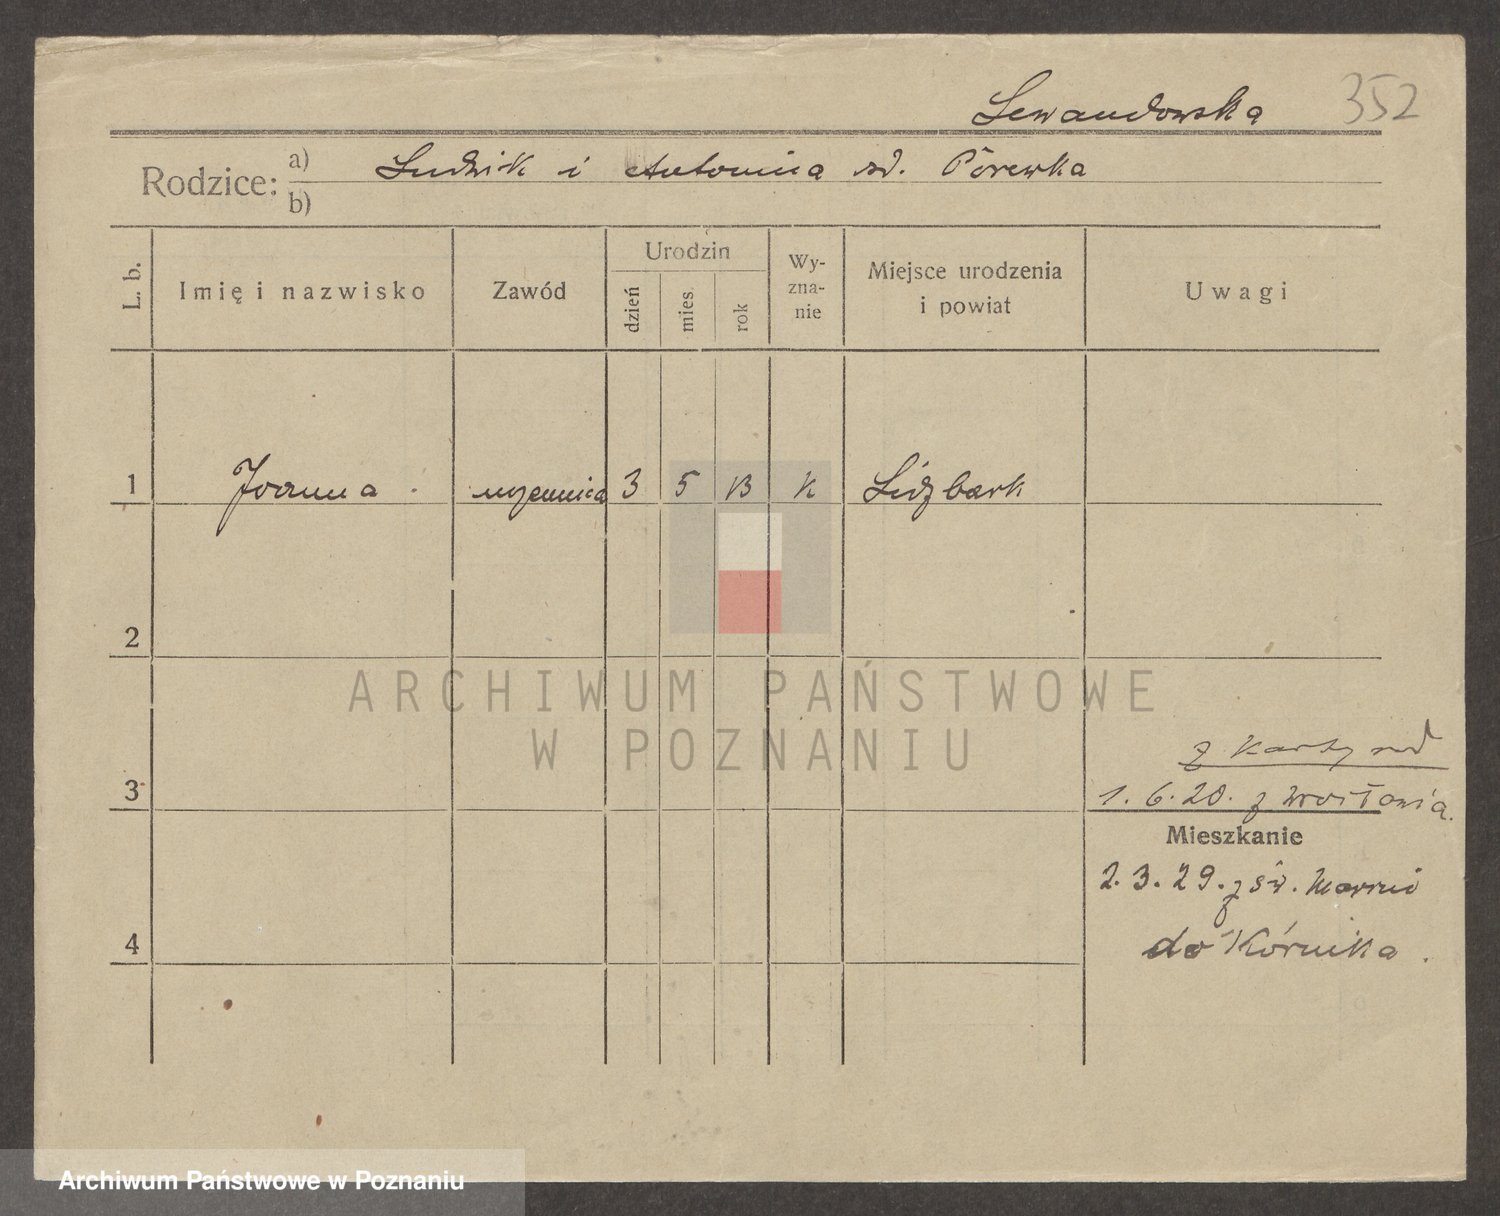 Lewandowska 352
Rodzice: a) Ludwik i Antonina
b)
L. b.
Imię i nazwisko
Zawód
Urodzin
dzień
mies.
rok
Wy-
zna-
nie
Miejsce urodzenia
i powiat
Uwagi
1 Joanna uczennica 3 5 13 k Lidzbark
2
3
4
z karty rod
1. 6. 20. z
Mieszkanie
2. 3. 29. z św.
do Kórnika.
ARCHIWUM PAŃSTWOWE
W POZNANIU
Archiwum Państwowe w Poznaniu